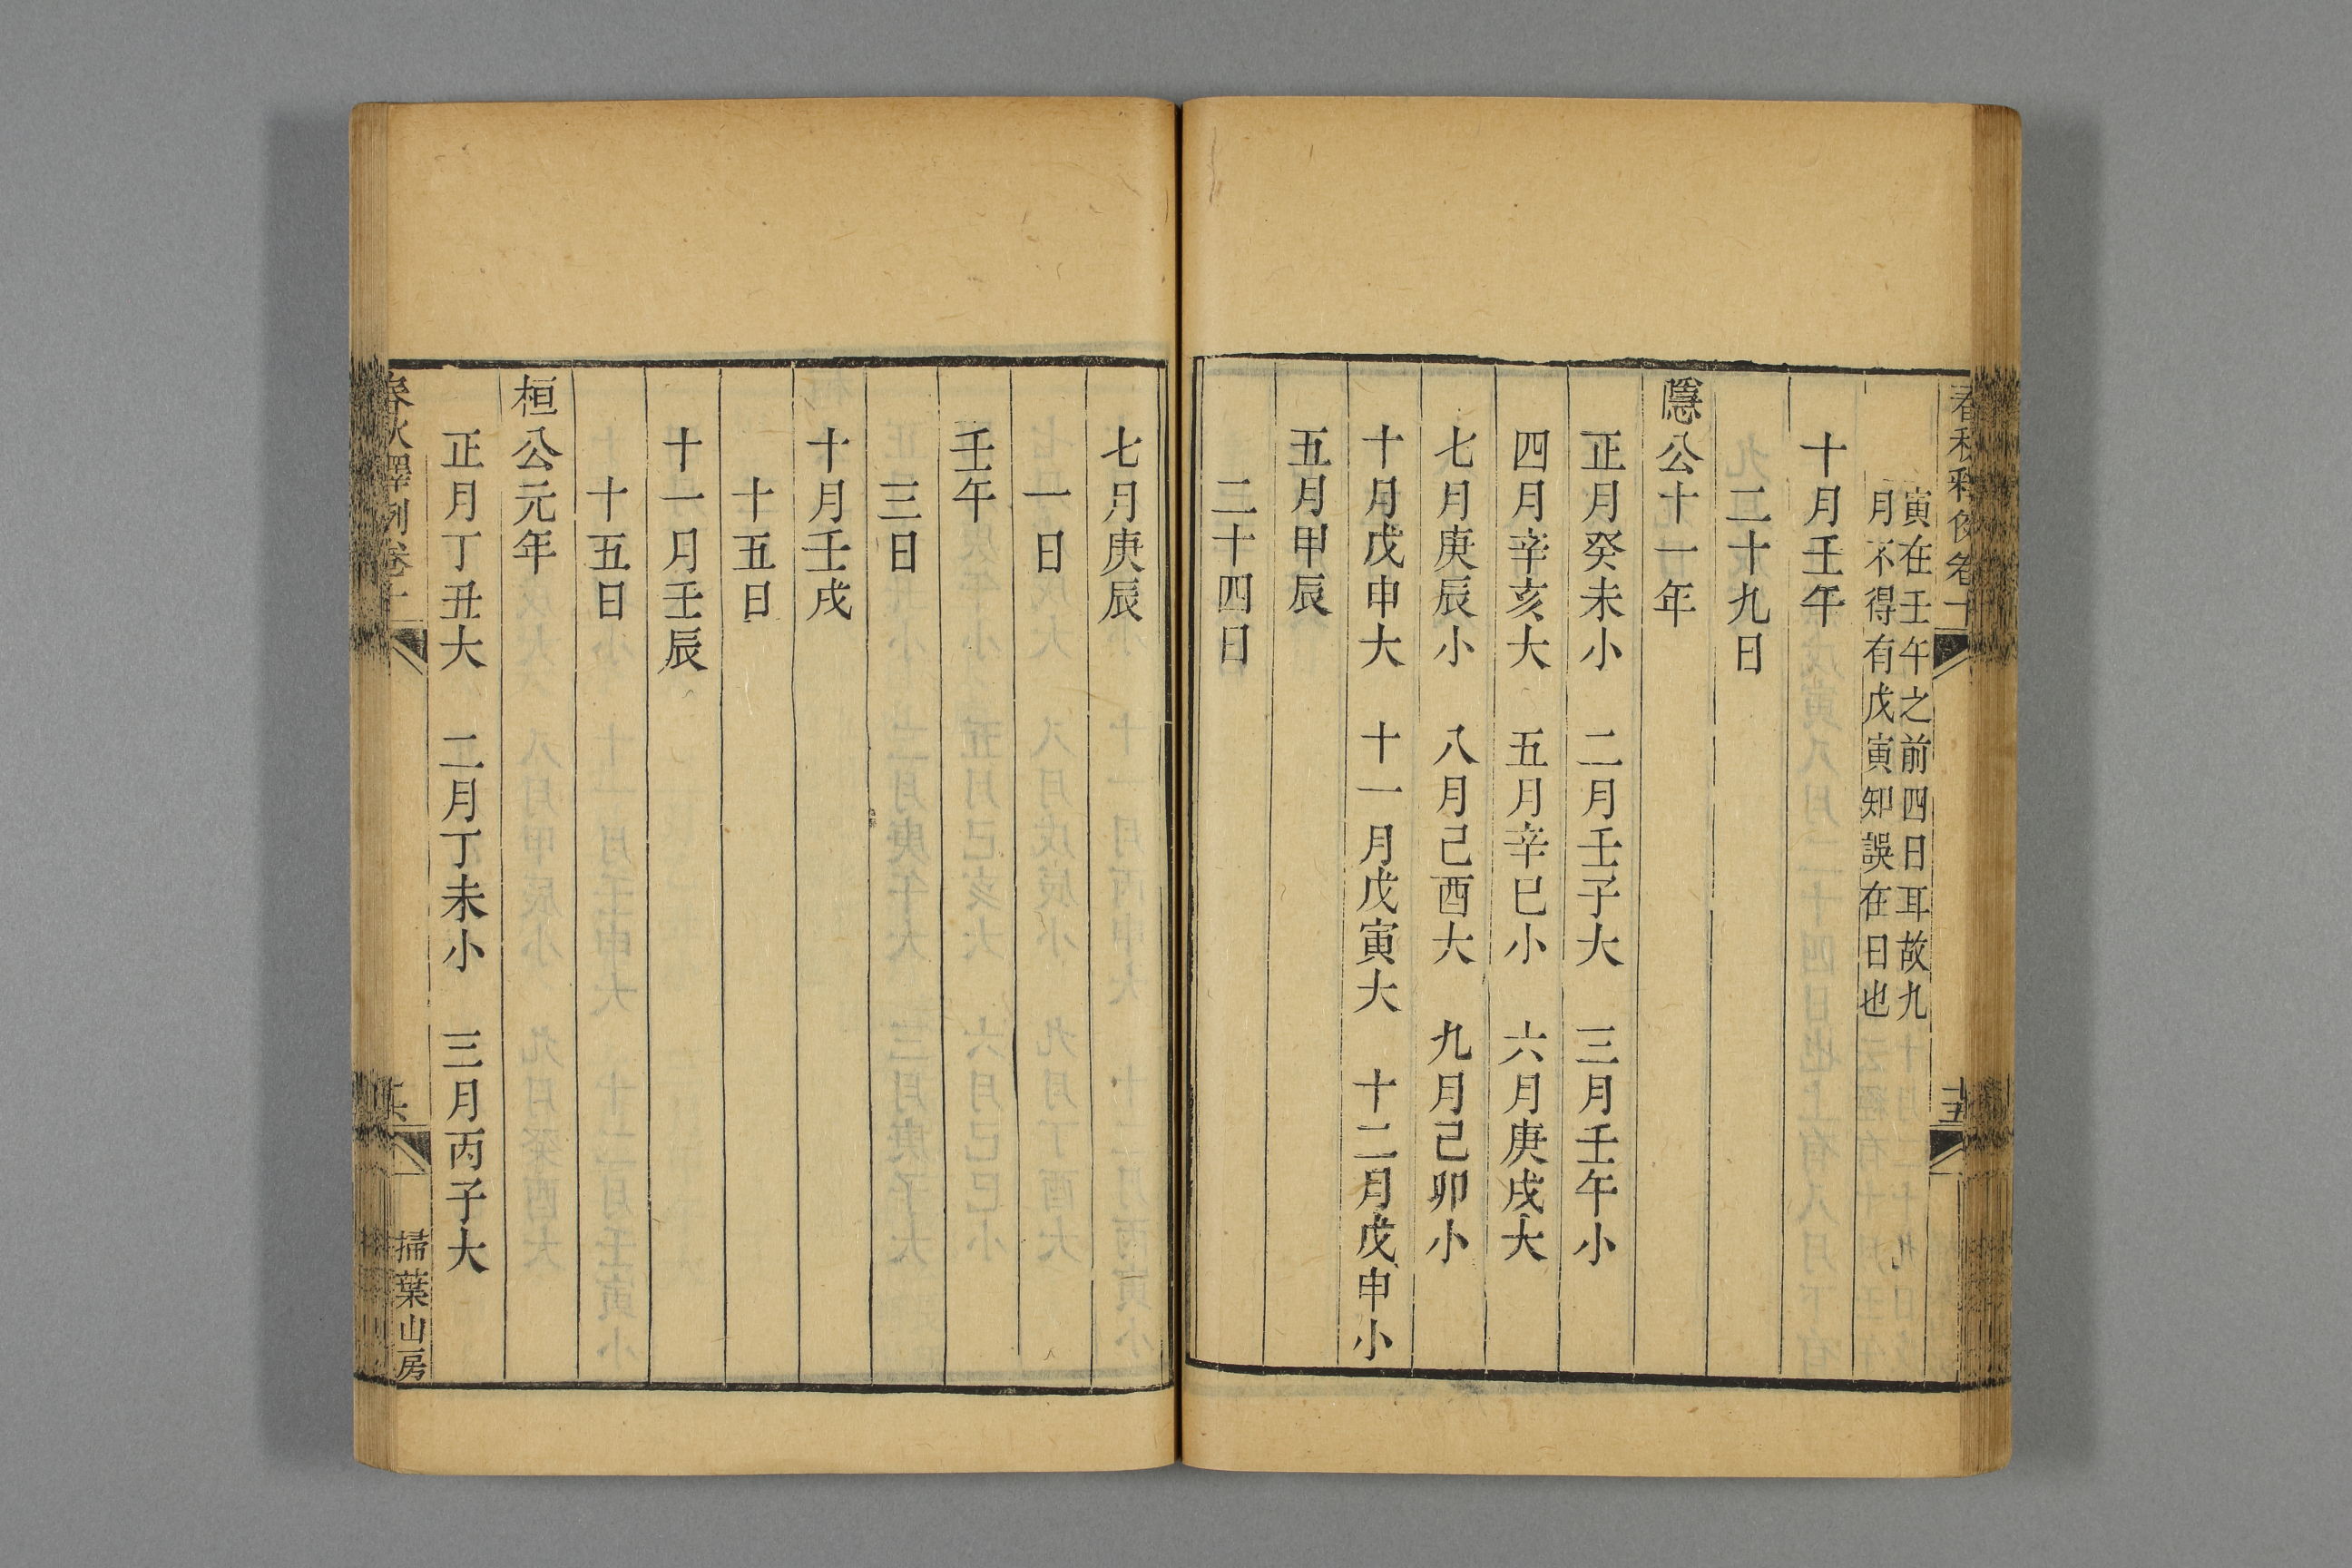 寅在壬午之前四日耳故九
月不得有戊寅知誤在日也
十月壬午
二十九日
隱公十一年
正月癸未小　二月壬子大　三月壬午小
四月辛亥大　五月辛巳小　六月庚戌大
七月庚辰小　八月己酉大　九月己卯小
十月戊申大　十一月戊寅大　十二月戊申小
五月甲辰
二十四日
七月庚辰
一日
壬午
三日
十月壬戌
十五日
十一月壬辰
十五日
桓公元年
正月丁丑大　二月丁未小　三月丙子大
春秋釋例卷十
掃葉山房